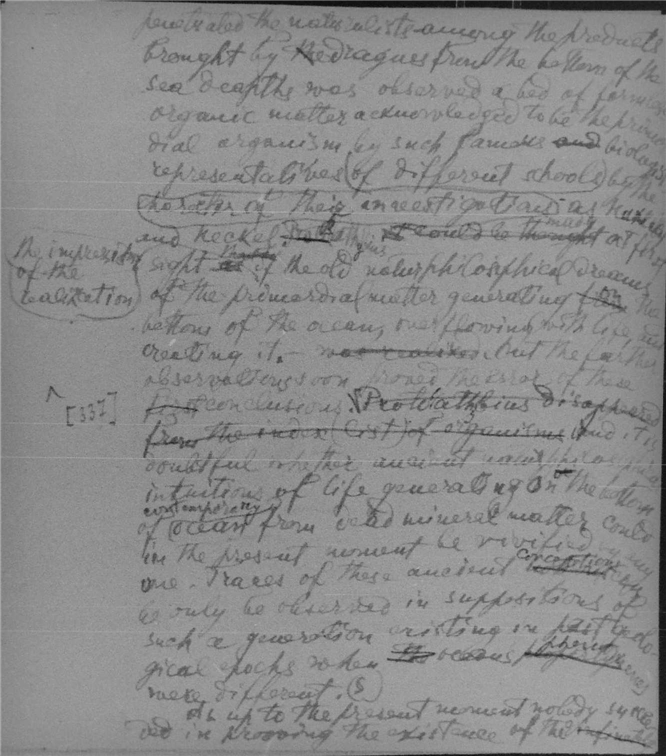 penetrated the naturalists among the products
brought by the dragues from the bottom of the
sea deapths was observed a bed of
organic matter acknowledged to be the primor
dial organism by such famous and biological
representatives (of different schools) by the
character of their investigations as Huxley
and Heckel. it could be thought at first
the impression
of the
realization
sight as if the old naturphilosophical dreams
of the primordial matter generating from on the
bottom of the ocean, overflowing with life and
creating it, - was realised. but the farther
observations soon proved the error of these
[337]
first conclusions. disappeared
from the index (list) of organisms and it is
doubtful whether ancient
intuitions of life generating on the bottom
contemporary
of ocean from dead mineral matter could
in the present moment be vivified by any
one. Traces of these ancient conceptions can
be only be observed in suppositions of
such a generation existing in past geolo
gical epochs when the oceans
were different. (5)
up to the present moment nobody succee
ded in prooving the existence of the